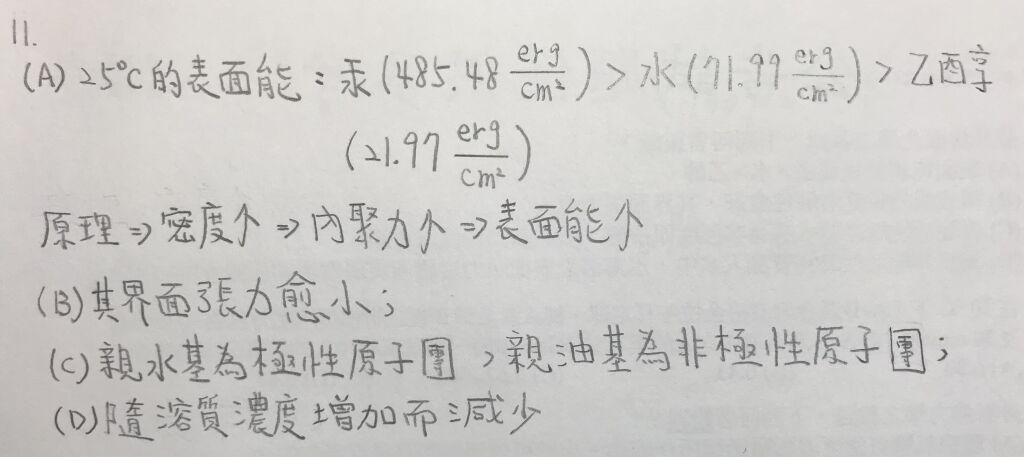 11.
(A) 25°C的表面能：汞(485.48 erg/cm²) > 水(71.97 erg/cm²) > 乙酉享
(21.97 erg/cm²)
原理⇒密度↑⇒內聚力↑⇒表面能↑
(B)其界面張力愈小；
(C)親水基為極性原子團，親油基為非極性原子團；
(D)隨溶質濃度增加而減少